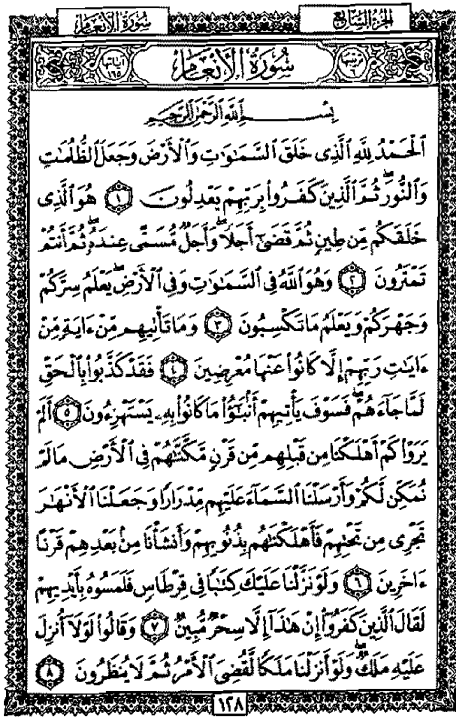 سُورَةُ الأَنْعَامِ
الجُزْءُ السَّابِعُ
سُورَةُ الأَنْعَامِ
بِسْمِ اللَّهِ الرَّحْمَٰنِ الرَّحِيمِ
الْحَمْدُ لِلَّهِ الَّذِي خَلَقَ السَّمَاوَاتِ وَالْأَرْضَ وَجَعَلَ الظُّلُمَاتِ
وَالنُّورَ ۖ ثُمَّ الَّذِينَ كَفَرُوا بِرَبِّهِمْ يَعْدِلُونَ ١ هُوَ الَّذِي
خَلَقَكُم مِّن طِينٍ ثُمَّ قَضَىٰ أَجَلًا ۖ وَأَجَلٌ مُّسَمًّى عِندَهُ ۖ ثُمَّ أَنتُمْ
تَمْتَرُونَ ٢ وَهُوَ اللَّهُ فِي السَّمَاوَاتِ وَفِي الْأَرْضِ ۖ يَعْلَمُ سِرَّكُمْ
وَجَهْرَكُمْ وَيَعْلَمُ مَا تَكْسِبُونَ ٣ وَمَا تَأْتِيهِم مِّنْ ءَايَةٍ مِّنْ
ءَايَاتِ رَبِّهِمْ إِلَّا كَانُوا عَنْهَا مُعْرِضِينَ ٤ فَقَدْ كَذَّبُوا بِالْحَقِّ
لَمَّا جَاءَهُمْ ۖ فَسَوْفَ يَأْتِيهِمْ أَنبَٰٓؤُا مَا كَانُوا بِهِ يَسْتَهْزِءُونَ ٥ أَلَمْ
يَرَوْا كَمْ أَهْلَكْنَا مِن قَبْلِهِم مِّن قَرْنٍ مَّكَّنَّاهُمْ فِي الْأَرْضِ مَا لَمْ
نُمَكِّن لَّكُمْ وَأَرْسَلْنَا السَّمَاءَ عَلَيْهِم مِّدْرَارًا وَجَعَلْنَا الْأَنْهَارَ
تَجْرِي مِن تَحْتِهِمْ فَأَهْلَكْنَاهُم بِذُنُوبِهِمْ وَأَنشَأْنَا مِن بَعْدِهِمْ قَرْنًا
ءَاخَرِينَ ٦ وَلَوْ نَزَّلْنَا عَلَيْكَ كِتَابًا فِي قِرْطَاسٍ فَلَمَسُوهُ بِأَيْدِيهِمْ
لَقَالَ الَّذِينَ كَفَرُوا إِنْ هَٰذَا إِلَّا سِحْرٌ مُّبِينٌ ٧ وَقَالُوا لَوْلَا أُنزِلَ
عَلَيْهِ مَلَكٌ ۖ وَلَوْ أَنزَلْنَا مَلَكًا لَّقُضِيَ الْأَمْرُ ثُمَّ لَا يُنظَرُونَ ٨
١٢٨